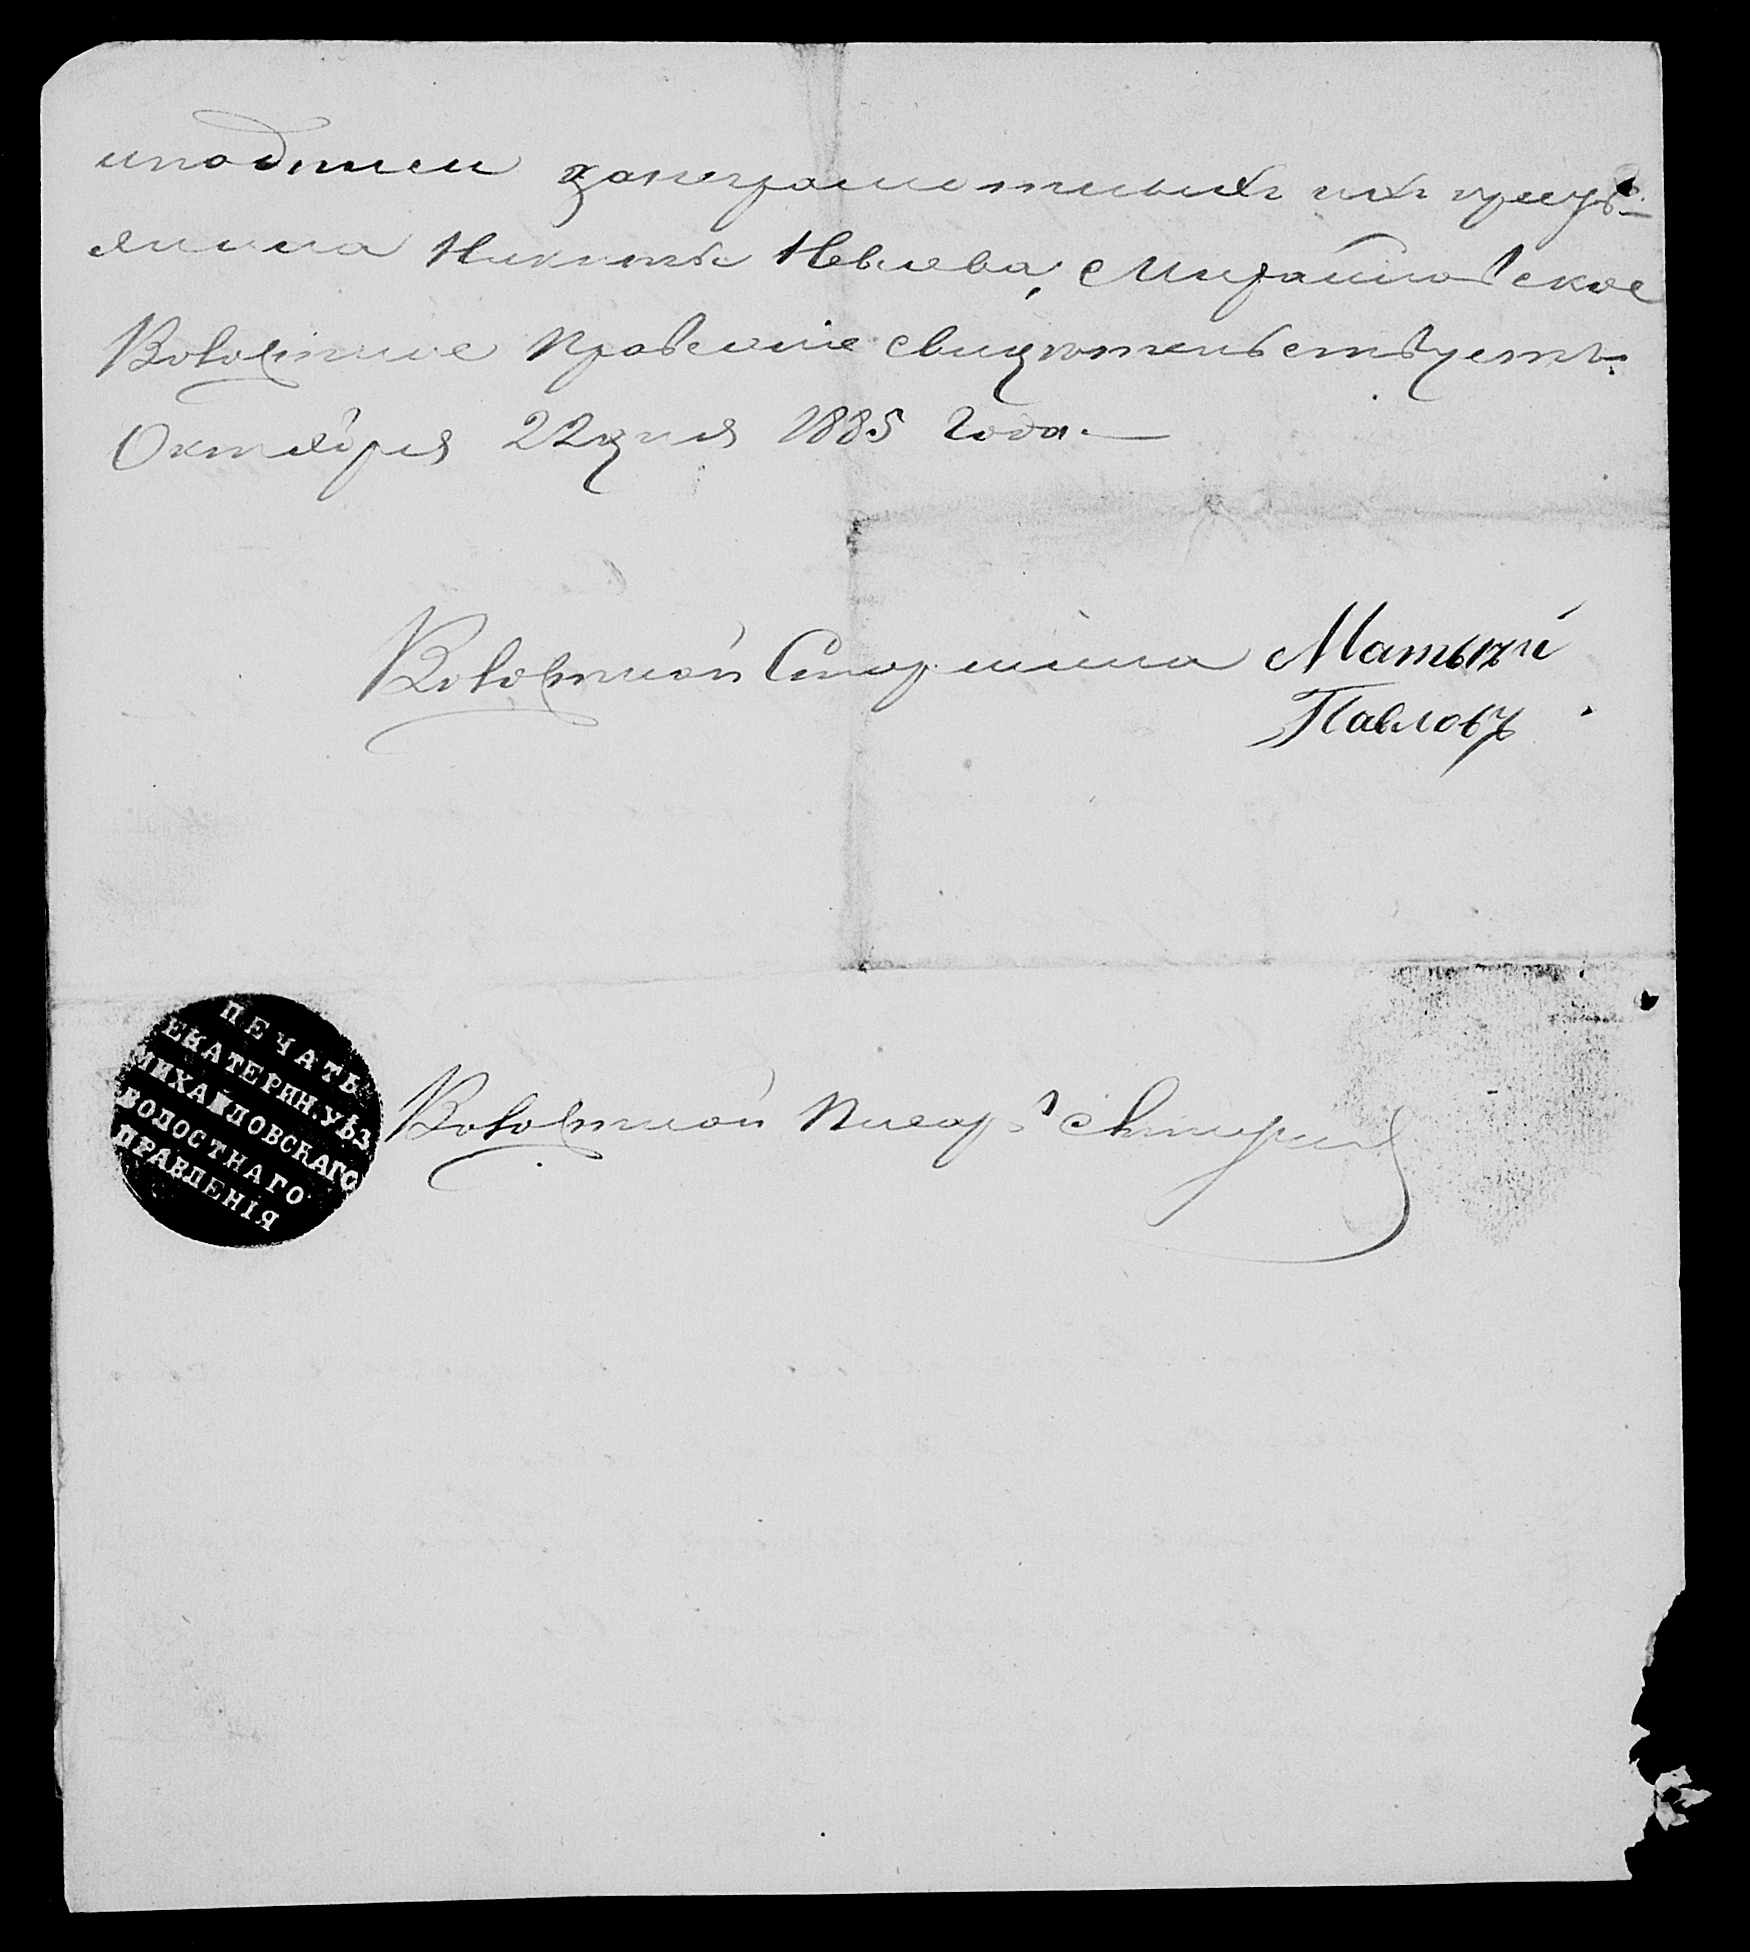 и подписи за неграмотных их кресть-
янина Никиты Ивлева, Михайловское
Волостное Правленіе свидѣтельствуетъ
Октября 22 дня 1885 года.—
Волостной Старшина Матвѣй
Павловъ
ПЕЧАТЬ
ЕКАТЕРИН. УѢЗ
МИХАЙЛОВСКАГО
ВОЛОСТНАГО
ПРАВЛЕНІЯ
Волостной Писарь